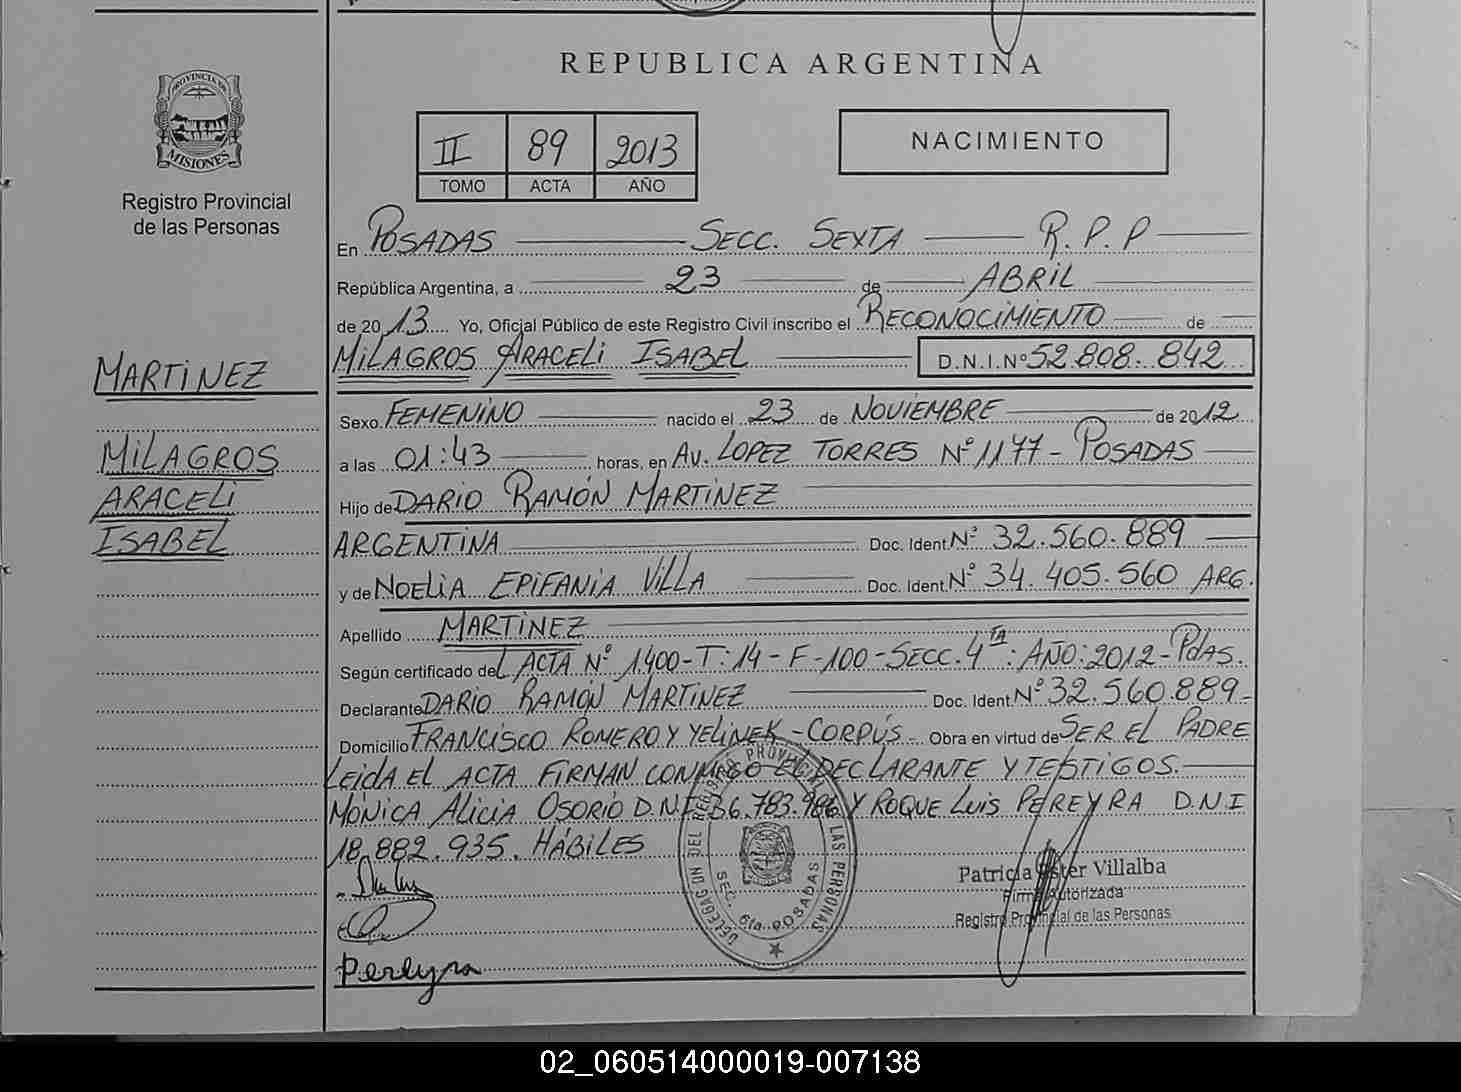 REPUBLICA ARGENTINA
PROVINCIA DE
MISIONES
Registro Provincial
de las Personas
II 89 2013
TOMO ACTA AÑO
NACIMIENTO
En POSADAS SECC. SEXTA R.P.P
República Argentina, a 23 de ABRIL
de 2013 Yo, Oficial Público de este Registro Civil inscribo el RECONOCIMIENTO de
MILAGROS ARACELI ISABEL D.N.I.Nº 52.808.842
MARTINEZ
MILAGROS
ARACELI
ISABEL
Sexo FEMENINO nacido el 23 de NOVIEMBRE de 2012
a las 01:43 horas, en AV. LOPEZ TORRES Nº 1177 - POSADAS
Hijo de DARIO RAMÓN MARTINEZ
ARGENTINA Doc. Ident. Nº 32.560.889
y de NOELIA EPIFANIA VILLA Doc. Ident. Nº 34.405.560 ARG.
Apellido MARTINEZ
Según certificado del ACTA Nº 1400-T:14-F-100-SECC.4TA: AÑO:2012-Pdas.
Declarante DARIO RAMÓN MARTINEZ Doc. Ident. Nº 32.560.889-
Domicilio FRANCISCO ROMERO Y YELINEK - CORPÚS - Obra en virtud de SER EL PADRE
LEIDA EL ACTA FIRMAN CONMIGO EL DECLARANTE Y TESTIGOS.
MÓNICA ALICIA OSORIO D.N.I 36.783.986 Y ROQUE LUIS PEREYRA D.N.I
18.882.935. HÁBILES
DELEGACION DEL REGISTRO PROVINCIAL DE LAS PERSONAS
SEC. 6ta. POSADAS
Patricia Ester Villalba
Firma Autorizada
Registro Provincial de las Personas
Pereyra
02_060514000019-007138